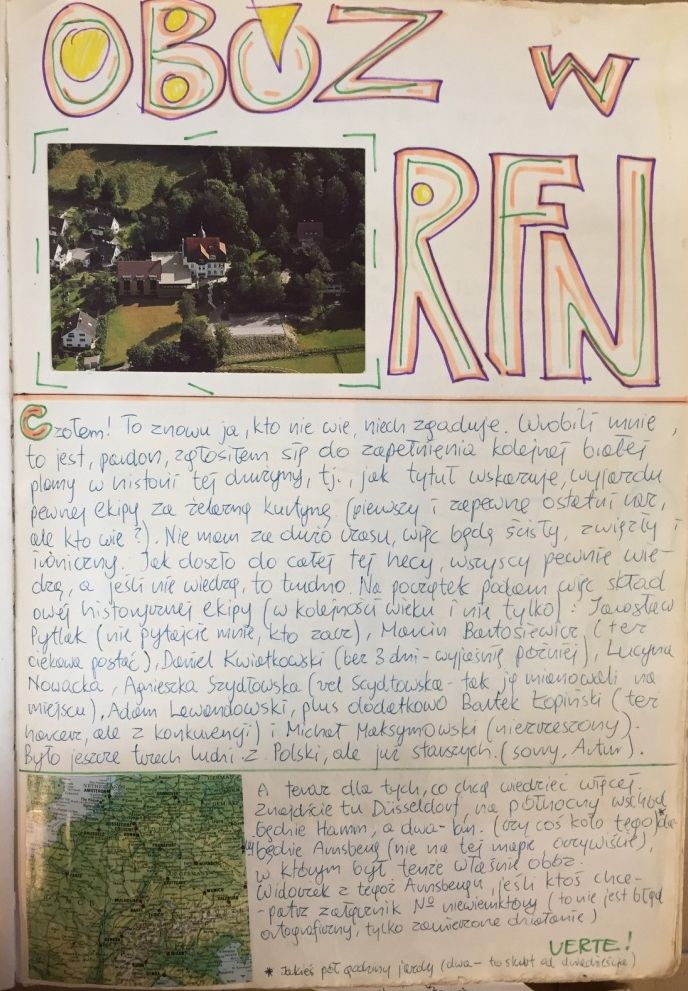 OBÓZ W
RFN
Czołem! To znowu ja, kto nie wie, niech zgaduje. Wrobili mnie,
to jest, pardon, zgłosiłem się do zapełnienia kolejnej białej
plamy w historii tej drużyny, tj., jak tytuł wskazuje, wyjazdu
pewnej ekipy za żelazną kurtynę (pierwszy i zapewne ostatni raz,
ale kto wie?). Nie mam za dużo czasu, więc będę ścisły, zwięzły i
ironiczny. Jak doszło do całej tej hecy, wszyscy pewnie wie-
dzą, a jeśli nie wiedzą, to trudno. Na początek podam więc skład
owej historycznej ekipy (w kolejności wieku i nie tylko): Jarosław
Pytlak (nie pytajcie mnie, kto zacz), Marcin Bartosiewicz (też
ciekawa postać), Daniel Kwiatkowski (bez 3 dni - wyjaśnię później), Lucyna
Nowacka, Agnieszka Szydłowska (vel Scydtowska - tak ją mianowali na
miejscu), Adam Lewandowski, plus dodatkowo Bartek Łopiński (też
harcerz, ale z konkurencji) i Michał Maksymowski (niezrzeszony).
Było jeszcze trzech ludzi z Polski, ale już starszych. (sowy, Artur).
A teraz dla tych, co chcą wiedzieć więcej.
Znajdźcie tu Düsseldorf, na północny wschód
będzie Hamm, a dwa* km. (czy coś koło tego)
będzie Arnsberg (nie na tej mapie, oczywiście),
w którym był tenże właśnie obóz.
Widoczek z tegoż Arnsbergu, jeśli ktoś chce-
- patrz załącznik Nº niewienktóry (to nie jest błąd
ortograficzny, tylko zamierzone działanie)
VERTE!
* Jakieś pół godziny jazdy (dwa - to skrót od dwadzieścia)